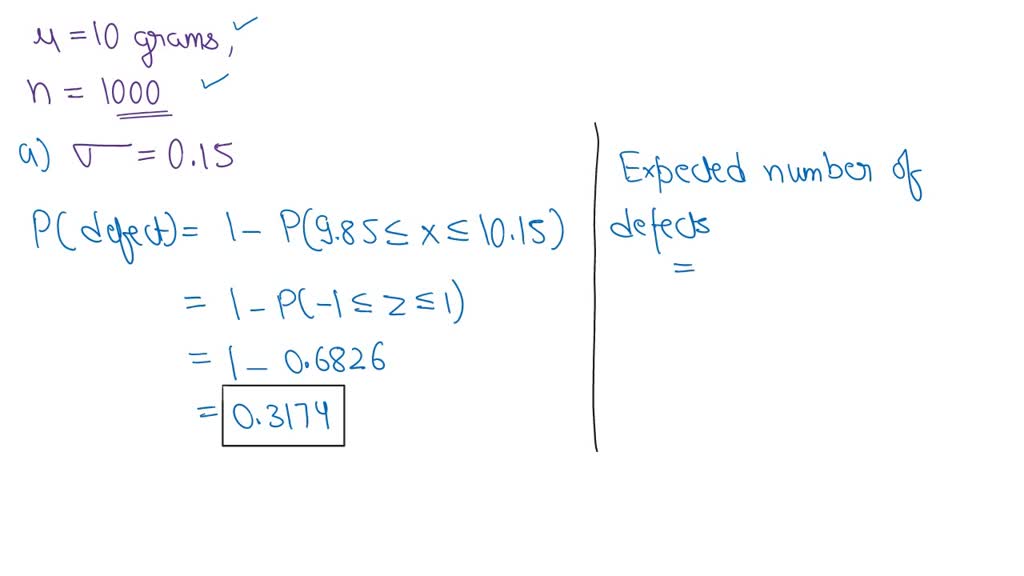 μ = 10 grams,
n = 1000
a) σ = 0.15
P(defect) = 1 - P(9.85 ≤ x ≤ 10.15)
= 1 - P(-1 ≤ z ≤ 1)
= 1 - 0.6826
= 0.3174
Expected number of
defects
=